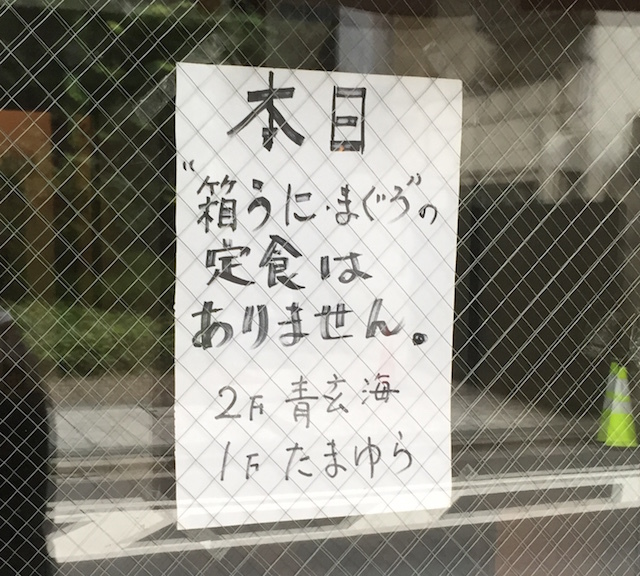 本日
"箱うに・まぐろ"の
定食は
ありません。
2F 青玄海
1F たまゆら